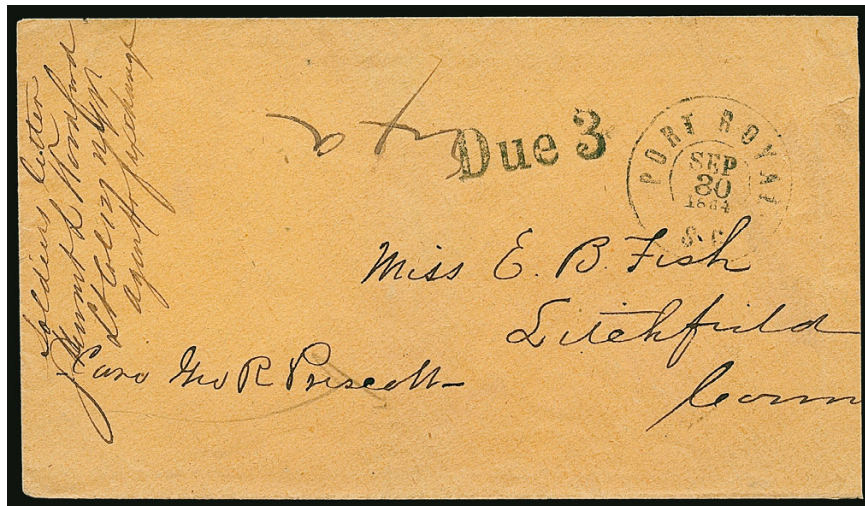 Soldiers letter
Stewart L Woodford
Lt Col 127 NYV
agent of exchange
Due 3
PORT ROYAL
SEP
30
1864
S.C.
Miss E. B. Fish
Litchfield
Conn
Care Geo R Prescott